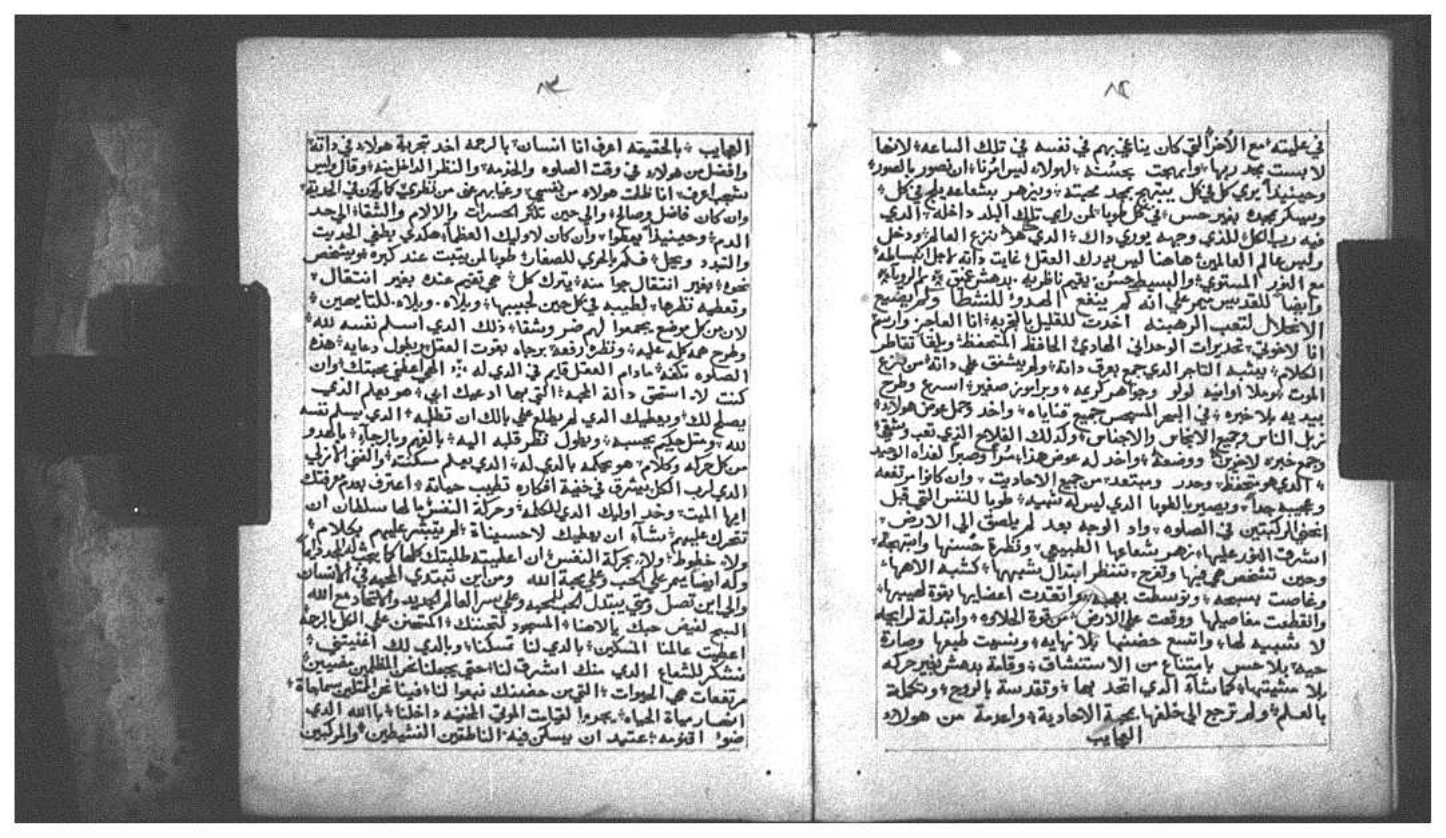 في عليته مع الأخر التي كان يناغي بهم في نفسه في تلك الساعه لانها
لابست مجد ربها وابهجت بحسنه لهولاء ليس امرنا ان نصور بالصور
وحينيدا يري كل في كل يبتهج بمجد محبته ويزهر بشعاعه يلج في كل
ويسكر بمجده بغير حس في كل طوبا لمن راي تلك البلد داخله الدي
فيه رب الكل للذي وجهه يوري داك الدي هو نزع العالم ودخل
وليس عالم العالمين هاهنا ليس يدرك العقل غايت داته لاجل انبساطه
مع النور المستوي والبسيط حسن يقيم ناظر به بدهش عنق الرويا
وايضا للقديس يمر علي انه لم ينفع الهدو للنشطا ولم يضيع
الانحلال لتعب الرهبنه اخدت للقليل بالتجربه انا العاجز وارسم
انا لاخوتي تحديرات الوحداني الهادي الحافظ المتحفظ ويلقا تقاطر
الكلام يشبه التاجر الدي جمع بعرق داته ولم يشفق علي داته من فزع
الموت وملا اوانيه لولو وجواهر كريمه وبرابوز صغير اسرع وطرح
بيديه بلا خبره في البحر المسجس جميع قناياه واخد وحمل عوض هولاء
زبل الناس وجميع الانجاس والاجناس وكذلك الفلاح الذي تعب وشقي
وجمع خبره لاخرين ووضعه واخد له عوض هذا شرا وصبرا لغداه الوحيد
الدي هو متحفظ وحدر ومبتعد من جميع الاحاديت وان كانوا مرتفعه
وعجيبه جدا ويصير بالطوبا الدي ليس له شبيه طوبا للنفس التي قبل
انحني الركبتين في الصلوه واد الوجه بعد لم يلصق الي الارض
اشرق النور عليها زهر شعاعها الطبيعي ونظرة حسنها وابتهجة
وحين تشخص هي فيها وتفرح تنتظر ابتدال شبهها كشبه الاهها
وغاصت بسبحه وتوسطت بهجه وانعقدت اعضايها بقوة لهيبها
وانقطعت مفاصيلها ووقعت علي الارض من قوة الحلاوه وابتدلة لرايحه
لا شبيه لها واتسع حضنها بلا نهايه ونسيت طبعها وصارة
حيه بلا حس بامتناع من الاستنشاق وقامة بدهش بغير حركه
بلا مشيتها كما شآ الدي اتحد بها وتقدسة بالروح وتكملة
بالعلم ولم ترجع الي خلفها بمحبة الاتحادية واعدمة من هولاء
العجايب
العجايب بالحقيقه اعرف انا انسان بالرحمه اخد تجربة هولاء في داته
وافضل من هولاء في وقت الصلوه والخدمه والنظر الداخل منه وقال ليس
بتعب اعرف انا ظلت هولاء من نفسي وغيابهم عني من نظري كالحين في الحديقه
وان كان فاضل وصالح والي حين تكتر الحسرات والالام والشقا الي حد
الدم وحينيدا يعطوا وان كان لاوليك العظما هكدي يطفي الحديت
والتبدد ويحل فكم بالحري للصغار طوبا لمن يتبت عند كبره ويشخص
نحوه بغير انتقال جوا منه يترك كل حي تقيم عنده بغير انتقال
وتعطيه نظرها لطبيبه في كل حين لحبيبها ويلاه ويلاه للتايهين
لان من كل موضع يجمعوا لهم ضر وشقا ذلك الدي اسلم نفسه لله
وطرح همه كله عليه ونظره رفعه برجاه بقوت العقل بطول دعايه هذه
الصلوه تكفه مادام العقل قايم في الدي له الهي اعطني محبتك وان
كنت لا استحق دالة المحبه التي بها ادعيك ابي هو يعلم الدي
يصلح لك ويعطيك الدي لم يطلع علي بالك ان تطلبه الدي يسلم نفسه
لله ومتل حكيم يحسبه ويطول نظر قلبه اليه بالفهم وبالرجاه بالهدو
من كل حركه وكلام هو يحكمه بالدي له الدي يعلم مسكنته والغني الازلي
الدي لرب الكل يشرق في خفية افكاره تطيب حياته اعترف بعدم معرفتك
ايها الميت وخد اوليك الدي للكلمه وحركة النفس ما لها سلطان ان
تتحرك عليهم بشآ ان يعطيك لاحسيناة لم يتفسر عليهم بكلام
ولا خطوط ولا بحركة النفس ان اعطيته طلبتك كلها كما يحب له المجد دايما
وله ايضا يمر علي الحب وعلي محبة الله ومن اين تبتدي المحبه في الانسان
والي اين تصل ومتي يبتدل الحب للمحبه وعلي سر العالم الجديد والاتحاد مع الله
السبح لفيض حبك يا الاهنا المسجود لتحننك المتحنن علي الكل بالرحمه
اعطيت عالمنا المسكين بالدي لنا تسكننا وبالدي لك اغنيتني
نشكر للشعاع الدي منك اشرق لنا حتي يجعلنا نحن المظلمين مضيين
مرتفعات هي الجودات التي من حضنك نبعوا لنا فينا نحن المنتنين سماجاة
انهار مياة الحياه يجروا لقيامت الموتي المخفيه داخلنا يا الله الدي
ضو اقنومه عتيد ان يسكن فيه الناطقين النشيطين والمركبين